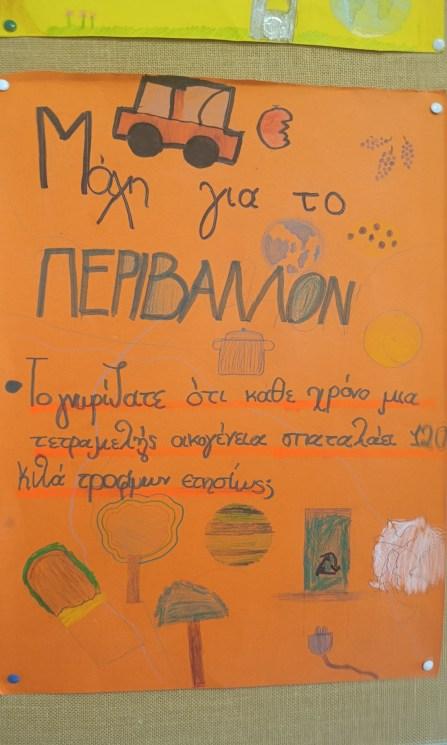 Μάχη για το
ΠΕΡΙΒΑΛΛΟΝ
• Το γνωρίζατε ότι καθε χρόνο μια
τετραμελής οικογένεια σπαταλάει 120
κιλά τροφιμων ετησίως;